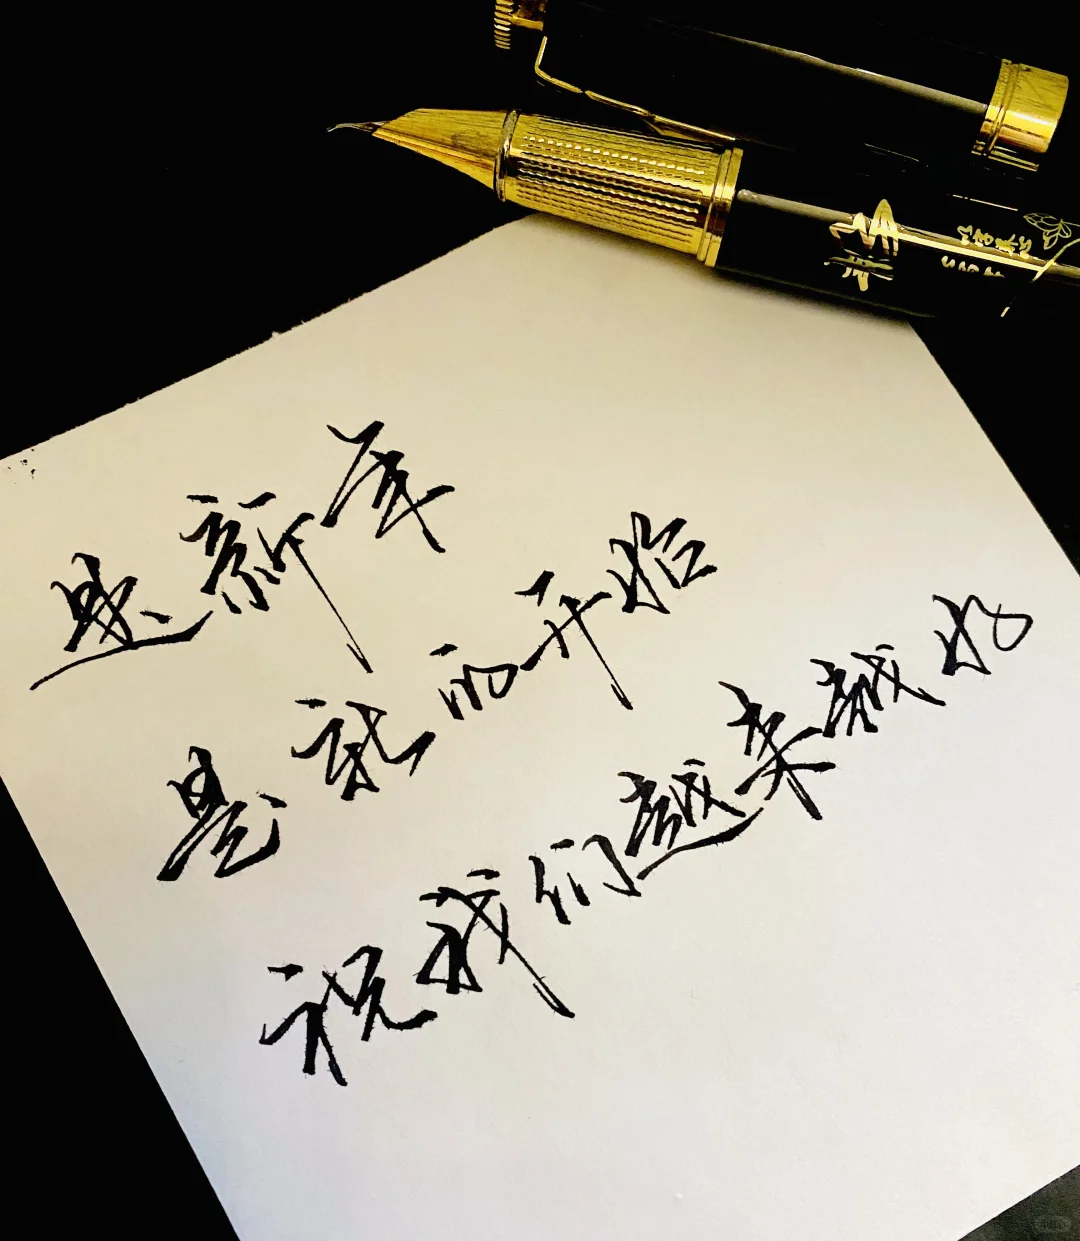 是新年
是新的开始
祝我们越来越好